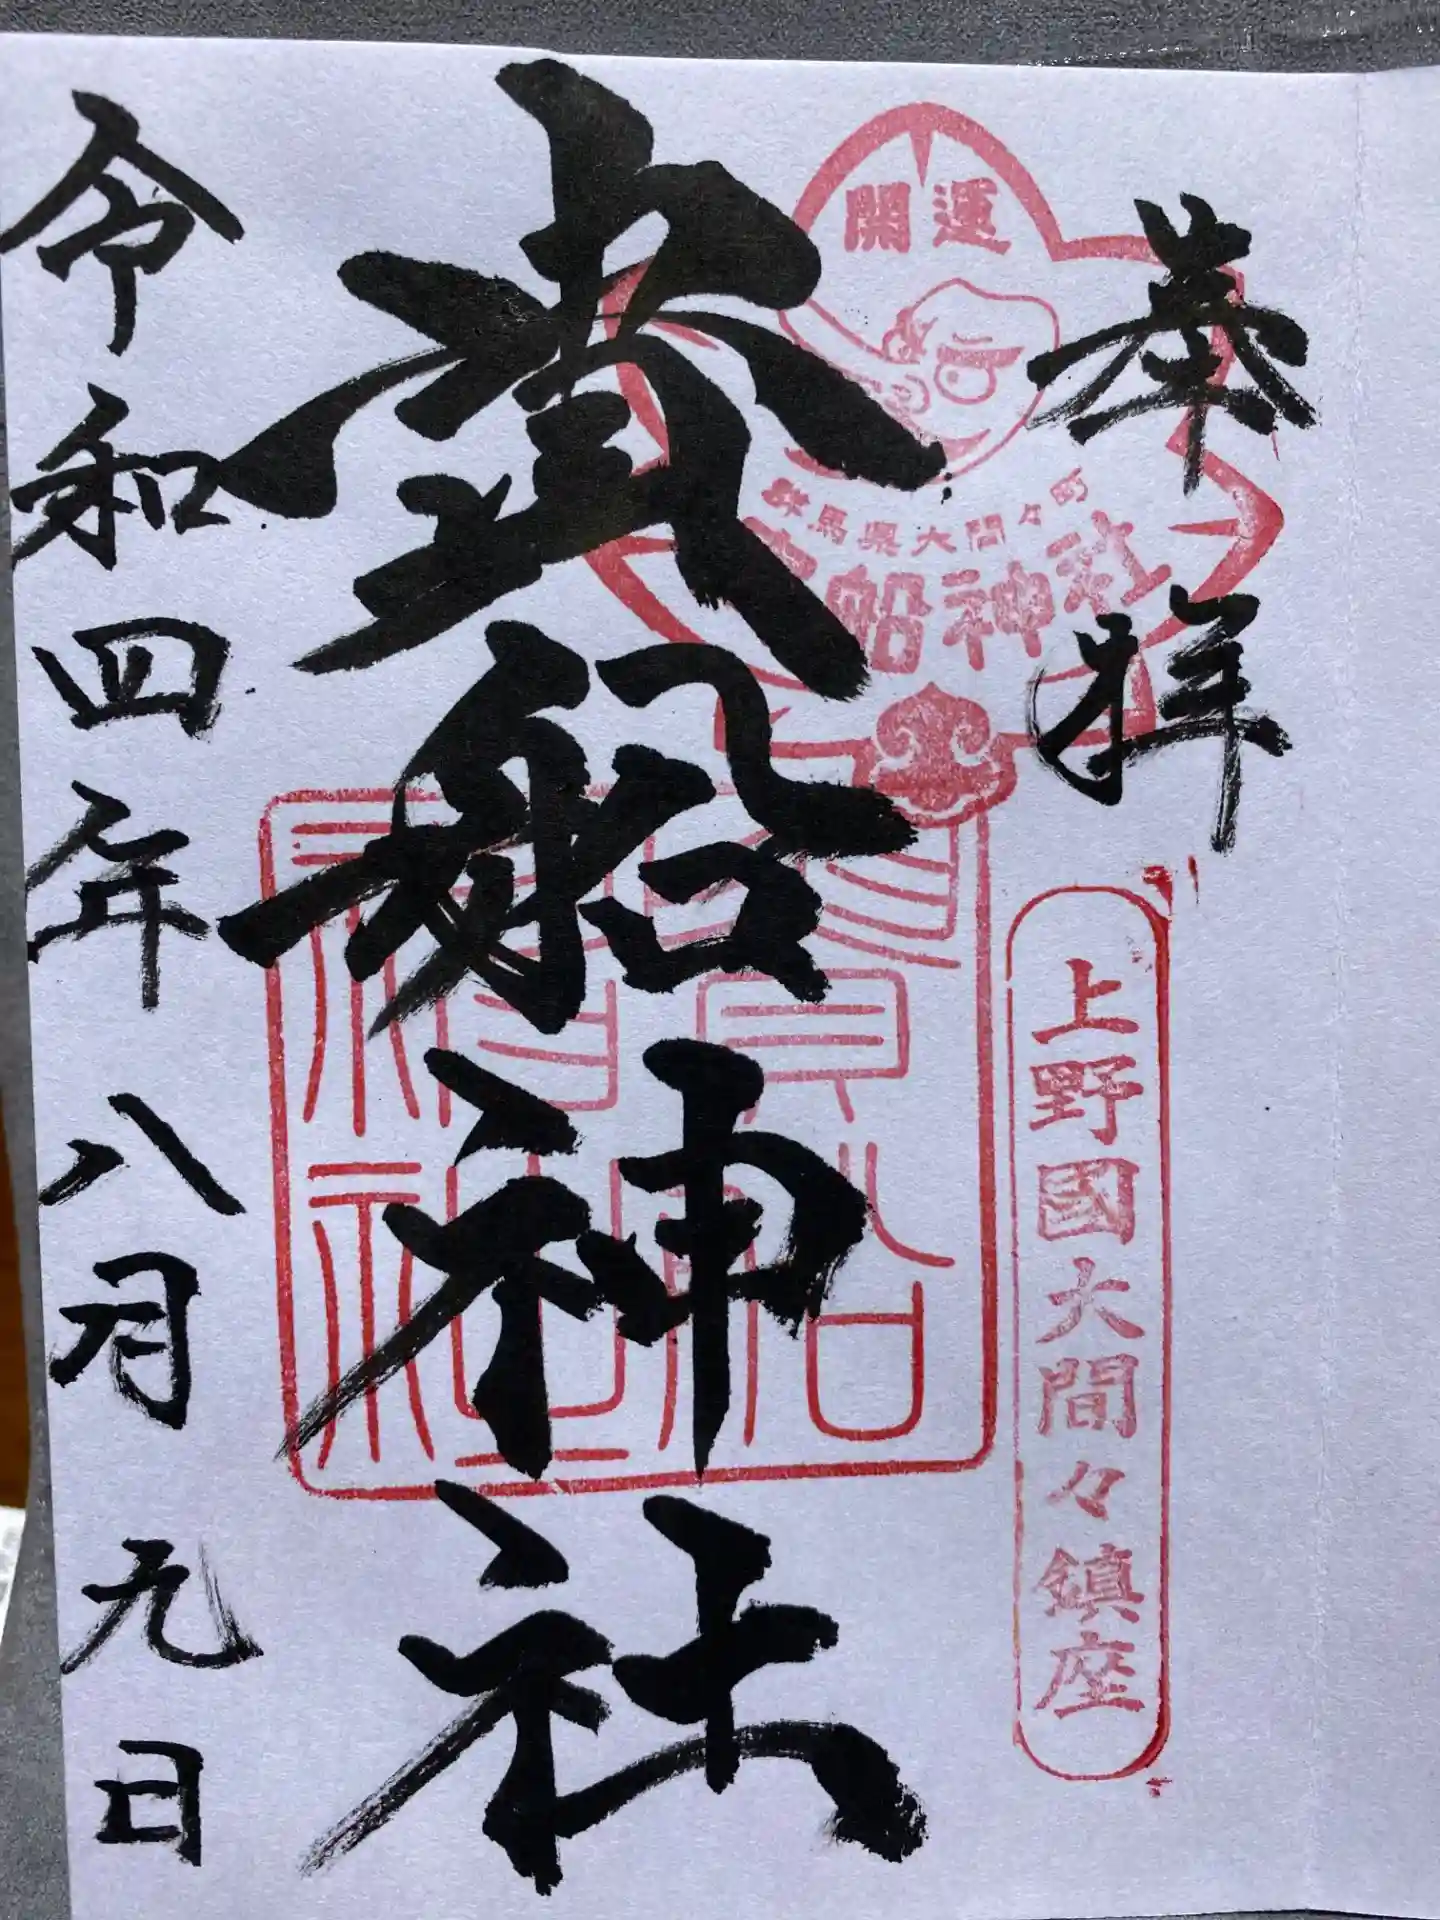 奉拝
開運
群馬県大間々町
貴船神社
上野國大間々鎮座
貴船神社
令和四年八月九日